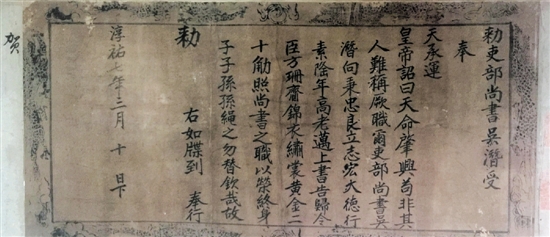 勑吏部尚書吴潛受
奉
天承運
皇帝詔曰天命肇興苟非其
人難稱厥職爾吏部尚書吴
潛向秉忠良立志宏大德行
素隆年高老邁上書告歸今
臣方珊齋錦衣繡裳黄金二
十觔照尚書之職以榮終身
子子孫孫繩之勿替欽哉故
勑
右如牒到 奉行
淳祐七年三月十日下
贺